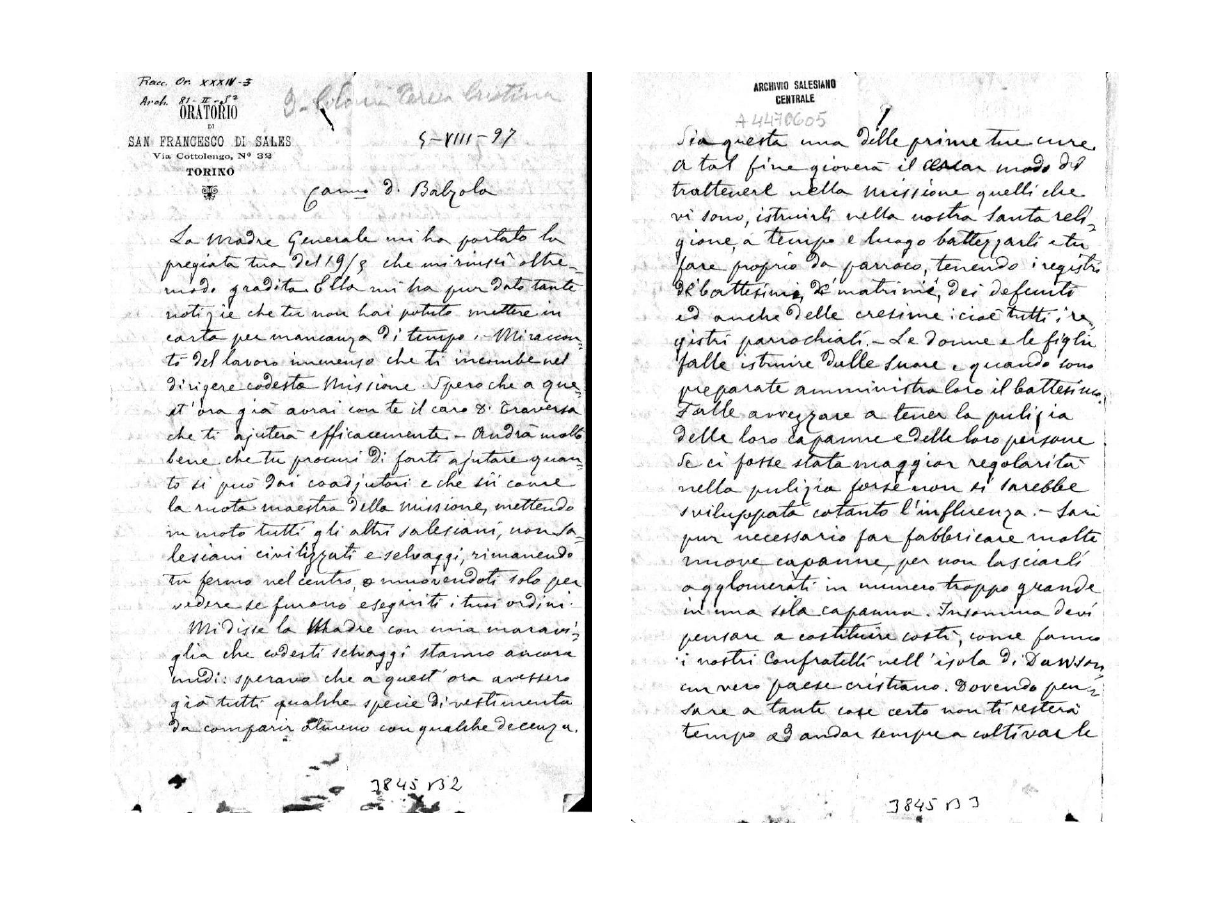 Fasc. Or. XXXIV-3
Arch. 81-II-5²
D- Colonia Teresa Cristina
ORATORIO
DI
SAN FRANCESCO DI SALES
Via Cottolengo, Nº 32
TORINO
5-VIII-97
Carmo d. Balzola
La Madre Generale mi ha portato la
pregiata tua del 19/5 che mi riuscì oltre-
modo gradita. Ella mi ha pur dato tante
notizie che tu non hai potuto mettere in
carta per mancanza di tempo. - Mi raccon-
tò del lavoro immenso che ti incombe nel
dirigere codesta Missione. Spero che a que-
st'ora già avrai con te il caro D. Traversa
che ti ajuterà efficacemente. - Andrà molto
bene che tu procuri di farti ajutare quan-
to si può dai coadjutori e che sii come
la ruota maestra della Missione, mettendo
in moto tutti gli altri salesiani, non sa-
lesiani civilizzati e selvaggi, rimanendo
tu fermo nel centro, o muovendoti solo per
vedere se furono eseguiti i tuoi ordini.
Mi disse la Madre con mia maravi-
glia che codesti selvaggi stanno ancora
nudi: speravo che a quest'ora avessero
già tutti qualche specie di vestimenta
da comparir almeno con qualche decenza.
3845 B 2
ARCHIVIO SALESIANO
CENTRALE
A4470605
Sia questa una delle prime tue cure.
A tal fine gioverà il modo di
trattenere nella Missione quelli che
vi sono, istruirli nella nostra Santa reli-
gione, a tempo e luogo battezzarli e tu
fare proprio da parroco, tenendo i registri
dei battesimi, dei matrimoni, dei defunti
ed anche delle cresime: cioè tutti i re-
gistri parrochiali. - Le donne e le figlie
falle istruire dalle Suore e quando sono
preparate amministra loro il battesimo.
Falle avvezzare a tener la pulizia
delle loro capanne e delle loro persone
Se ci fosse stata maggior regolarità
nella pulizia forse non si sarebbe
sviluppata cotanto l'influenza. - Sarà
pur necessario far fabbricare molte
nuove capanne, per non lasciarli
agglomerati in numero troppo grande
in una sola capanna. Insomma devi
pensare a costituire costì, come fanno
i nostri Confratelli nell'isola di Dawson,
un vero paese cristiano. Dovendo pen-
sare a tante cose certo non ti resterà
tempo ad andar sempre a coltivar le
3845 B 3